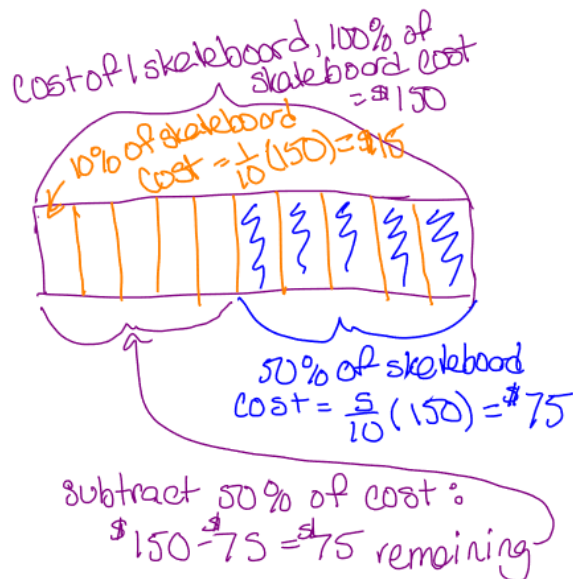 cost of 1 skateboard, 100% of
skateboard cost
= $150
10% of skateboard
cost = 1/10 (150) = $15
50% of skateboard
cost = 5/10 (150) = $75
subtract 50% of cost:
$150 - $75 = $75 remaining